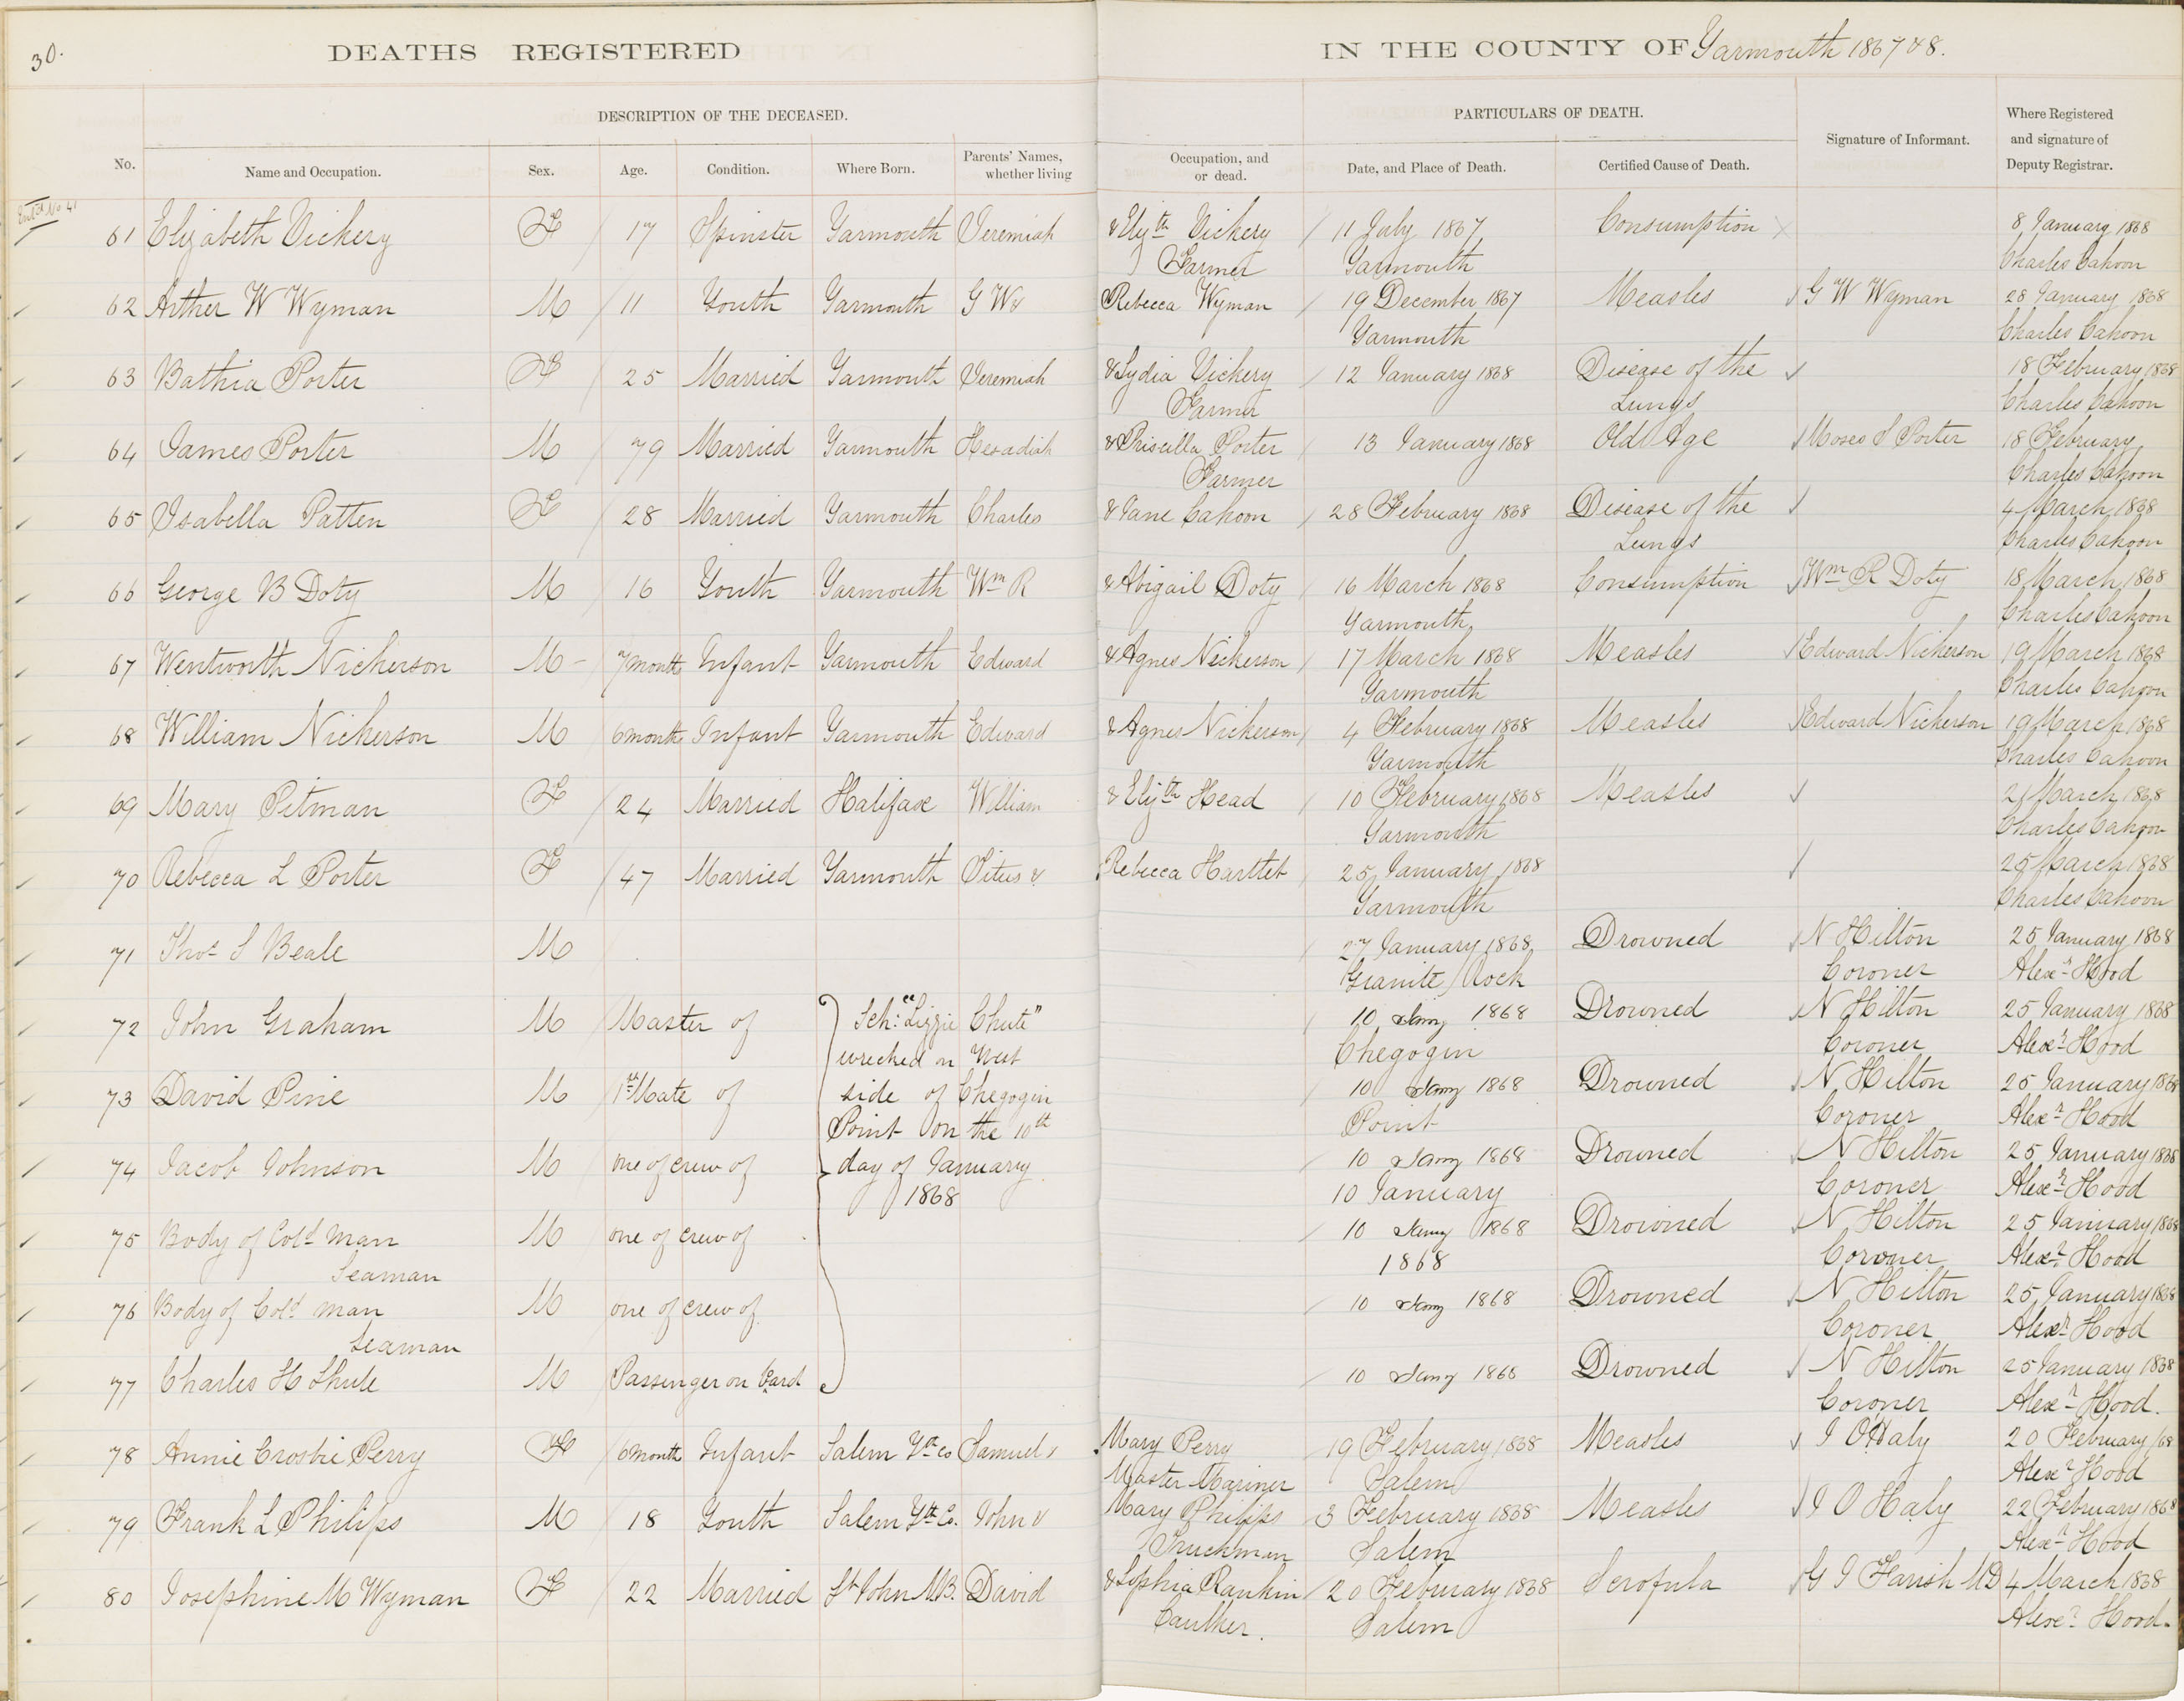 30.
DEATHS REGISTERED IN THE COUNTY OF Yarmouth 1867 & 8.
DESCRIPTION OF THE DECEASED. PARTICULARS OF DEATH.
No. Name and Occupation. Sex. Age. Condition. Where Born. Parents' Names, whether living Occupation, and or dead. Date, and Place of Death. Certified Cause of Death. Signature of Informant. Where Registered and signature of Deputy Registrar.
Ent'd No 41
61 Elizabeth Vickery F 17 Spinster Yarmouth Jeremiah & Elizth Vickery 11 July 1867 Consumption 8 January 1868
Farmer Yarmouth Charles Cahoon
62 Arther W Wyman M 11 Youth Yarmouth G W & Rebecca Wyman 19 December 1867 Measles G W Wyman 28 January 1868
Yarmouth Charles Cahoon
63 Bathia Porter F 25 Married Yarmouth Jeremiah & Lydia Vickery 12 January 1868 Disease of the 18 February 1868
Farmer Lungs Charles Cahoon
64 James Porter M 79 Married Yarmouth Hesadiah & Priscilla Porter 13 January 1868 Old Age Moses S Porter 18 February
Farmer Charles Cahoon
65 Isabella Patten F 28 Married Yarmouth Charles & Jane Cahoon 28 February 1868 Disease of the 4 March 1868
Lungs Charles Cahoon
66 George B Doty M 16 Youth Yarmouth Wm R & Abigail Doty 16 March 1868 Consumption Wm R Doty 18 March 1868
Yarmouth Charles Cahoon
67 Wentworth Nickerson M - 7 month Infant Yarmouth Edward & Agnes Nickerson 17 March 1868 Measles Edward Nickerson 19 March 1868
Yarmouth Charles Cahoon
68 William Nickerson M 6 month Infant Yarmouth Edward & Agnes Nickerson 4 February 1868 Measles Edward Nickerson 19 March 1868
Yarmouth Charles Cahoon
69 Mary Pitman F 24 Married Halifax William & Elizth Head 10 February 1868 Measles 21 March 1868
Yarmouth Charles Cahoon
70 Rebecca L Porter F 47 Married Yarmouth Titus & Rebecca Hartlet 25 January 1868 25 March 1868
Yarmouth Charles Cahoon
71 Thos S Beale M 27 January 1868 Drowned N Hilton 25 January 1868
Granite Rock Coroner Alexr Hood
72 John Graham M Master of Sch: "Lizzie Chute" 10 Jany 1868 Drowned N Hilton 25 January 1868
wrecked on West Chegogin Coroner Alexr Hood
73 David Pine M 1st Mate of side of Chegogin 10 Jany 1868 Drowned N Hilton 25 January 1868
Point on the 10th Point Coroner Alexr Hood
74 Jacob Johnson M one of crew of day of January 10 Jany 1868 Drowned N Hilton 25 January 1868
1868 10 January Coroner Alexr Hood
75 Body of Cold Man M one of crew of 10 Jany 1868 Drowned N Hilton 25 January 1868
Seaman 1868 Coroner Alexr Hood
76 Body of Cold man M one of crew of 10 Jany 1868 Drowned N Hilton 25 January 1868
Seaman Coroner Alexr Hood
77 Charles H M Passenger on Bard 10 Jany 1868 Drowned N Hilton 25 January 1868
Coroner Alexr Hood.
78 Annie Crosbie Perry F 6 month Infant Salem Yth Co Samuel & Mary Perry 19 February 1868 Measles J O'Haly 20 February /68
Master Mariner Salem Alexr Hood
79 Frank L Philips M 18 Youth Salem Yth Co. John & Mary Philips 3 February 1868 Measles J O Haly 22 February 1868
Truckman Salem Alexr Hood
80 Josephine M Wyman F 22 Married St John N.B. David & Sophia Rankin 20 February 1868 Scrofula G J Farish MD 4 March 1868
Caulker. Salem Alexr Hood.